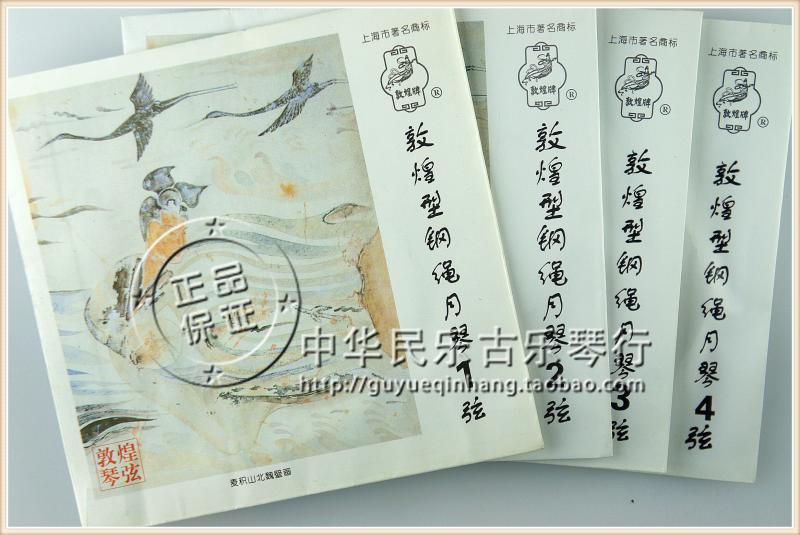 上海市著名商标
敦煌牌
®
敦煌型钢绳月琴1弦
敦煌琴弦
麦积山北魏壁画
上海市著名商标
敦煌牌
®
敦煌型钢绳月琴2弦
上海市著名商标
敦煌牌
®
敦煌型钢绳月琴3弦
上海市著名商标
敦煌牌
®
敦煌型钢绳月琴4弦
正品
保证
中华民乐古乐琴行
http://guyueqinhang.taobao.com